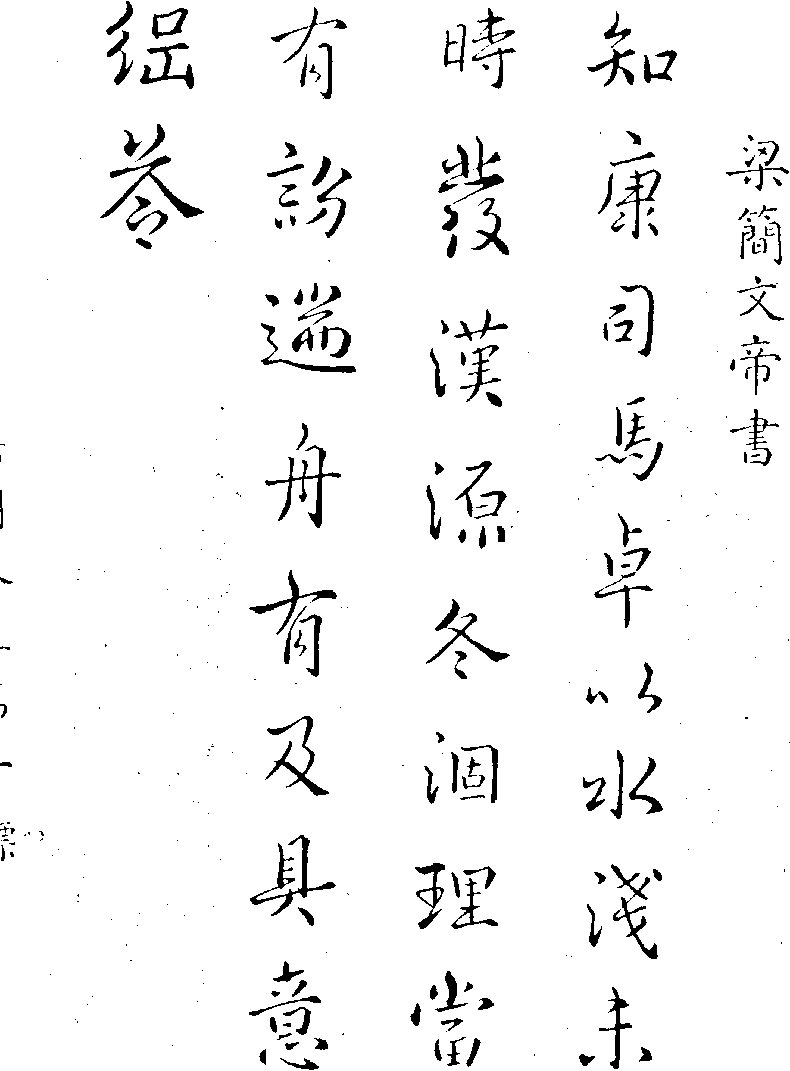 梁簡文帝書
知康司馬卓以水淺未
時發漢源冬涸理當
有遄舟有及具意
綱荅